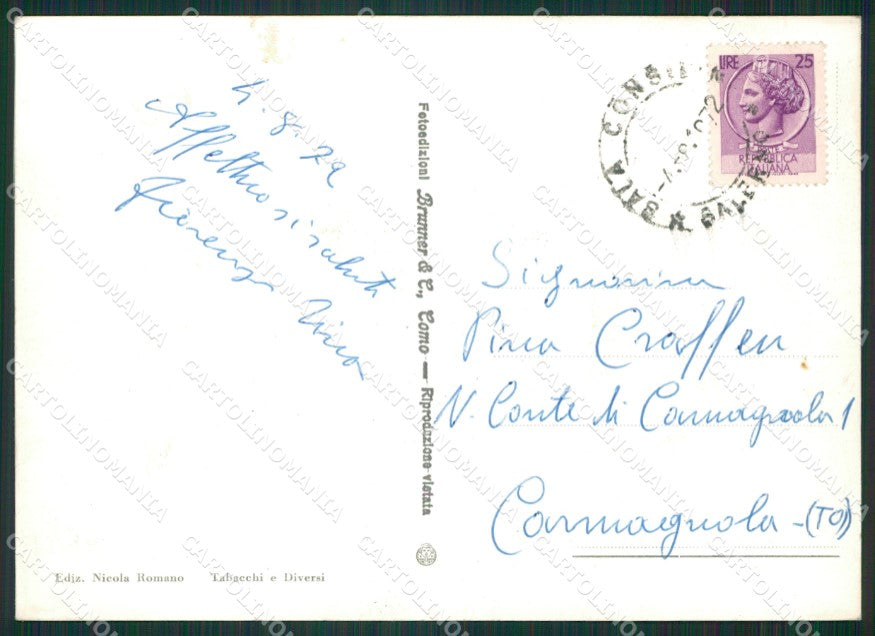 4.8.72
Affettuosi saluti
Fiorenza Nina
Fotoedizioni Brunner & C., Como — Riproduzione vietata
LIRE 25
REPUBBLICA
ITALIANA
SALA CONSILINA
SALERNO
Signorina
Pina Craffen
V. Conte di Carmagnola 1
Carmagnola - (TO)
Ediz. Nicola Romano Tabacchi e Diversi
CARTOLINOMANIA